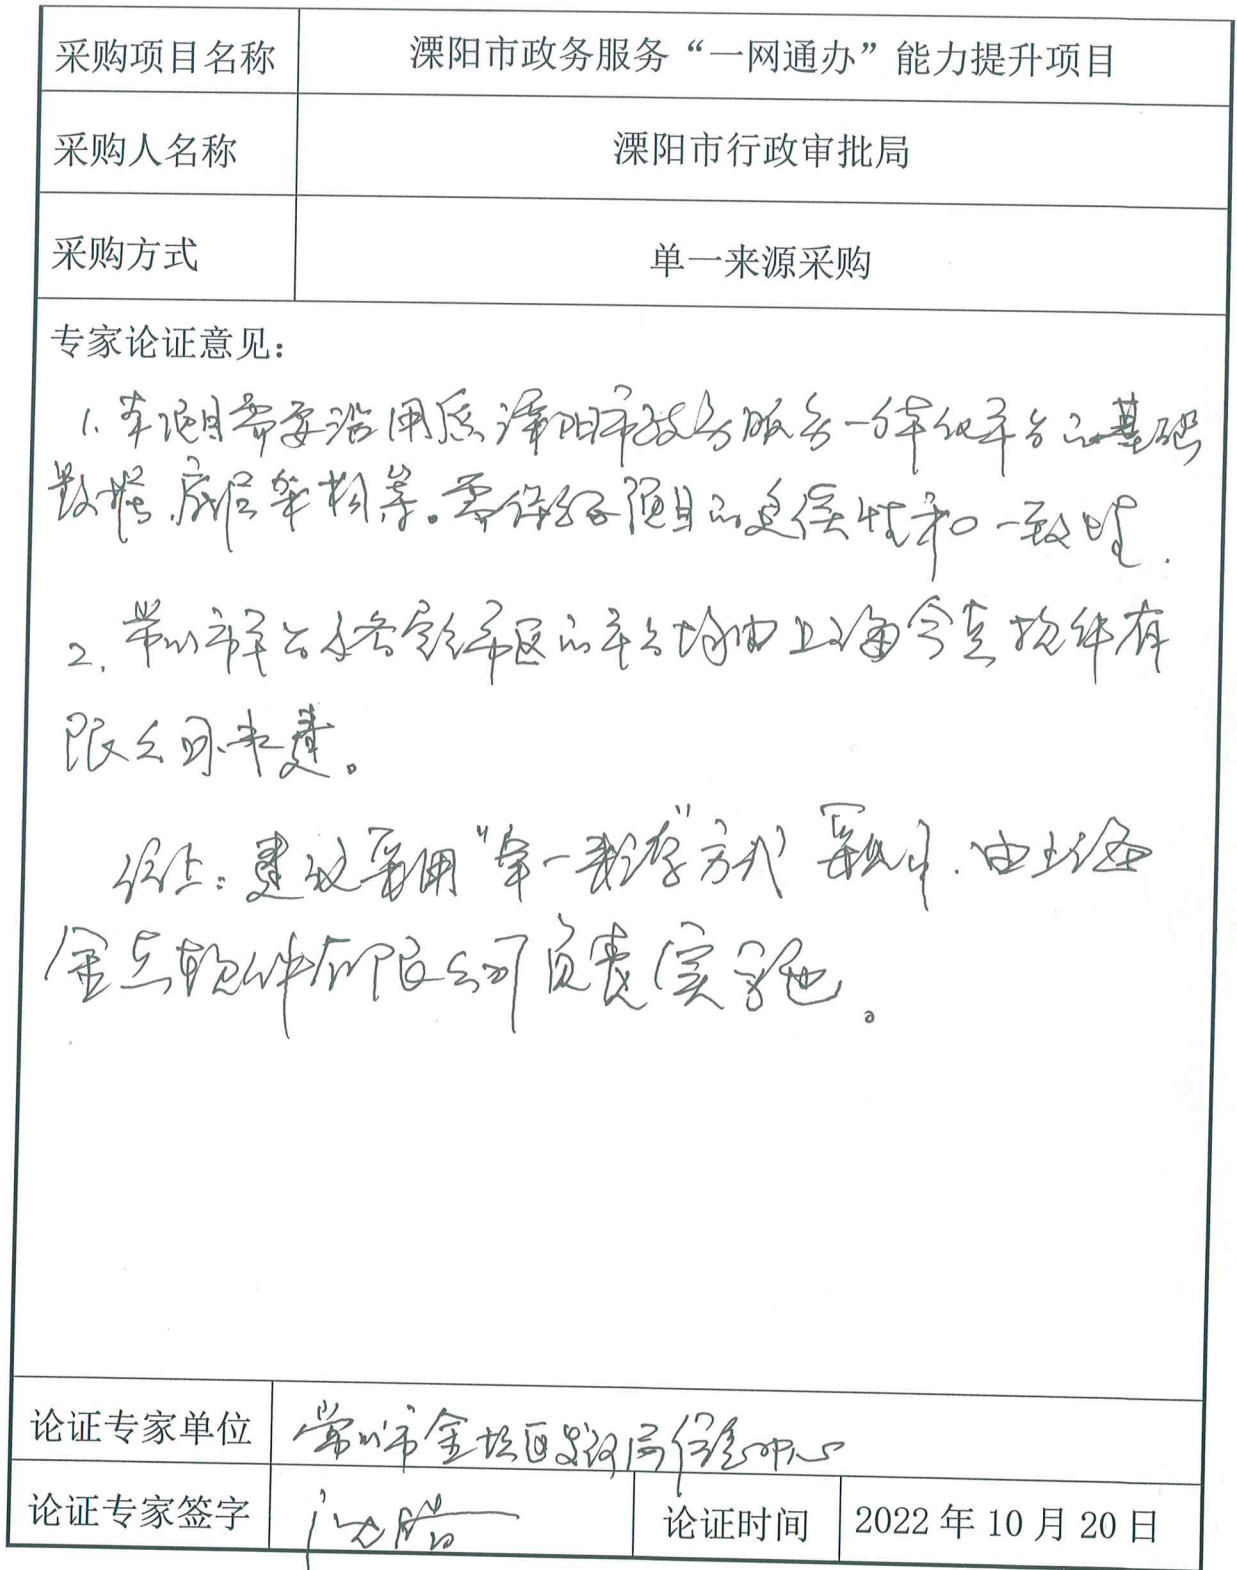 采购项目名称 溧阳市政务服务“一网通办”能力提升项目
采购人名称 溧阳市行政审批局
采购方式 单一来源采购
专家论证意见：
1. 本项目需要沿用原溧阳市政务服务一体化平台的基础
数据、底层架构等。需保证项目的延续性和一致性.
2. 常州市平台和各辖市区的平台均由上海今点软件有
限公司承建。
综上：建议采用“单一来源”方式采购，由上海
金点软件有限公司负责实施。
论证专家单位 常州市金坛区财政局信息中心
论证专家签字 论证时间 2022 年 10 月 20 日